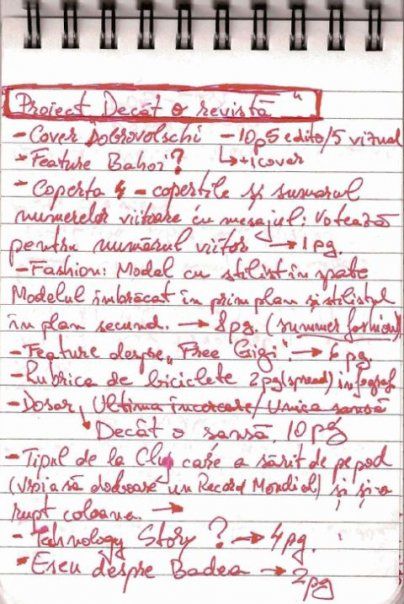 Proiect Decât o revistă"
- Cover Dobrovolschi - 10p 5 edito/5 vizual
- Feature Bahoi? ↳ +1 cover
- Coperta 4 - copertile și sumarul
numerelor viitoare cu mesajul: Votează
pentru numărul viitor → 1 pg.
- Fashion: Model cu stilist în spate
Modelul îmbrăcat în prim plan și stilistul
în plan secund. → 8 pg. (summer fashion)
- Feature despre „Free Gigi". → 6 pg.
- Rubrica de biciclete 2pg (spread) infograf
- Dosar, Ultima încercare/Unica șansă
Decât o șansă, 10 pg
- Tipul de la Cluj care a sărit de pe pod
(vroia să doboare un Record Mondial) și și-a
rupt coloana. →
- Tehnology Story? → 4 pg.
- Eseu despre Badea → 2pg